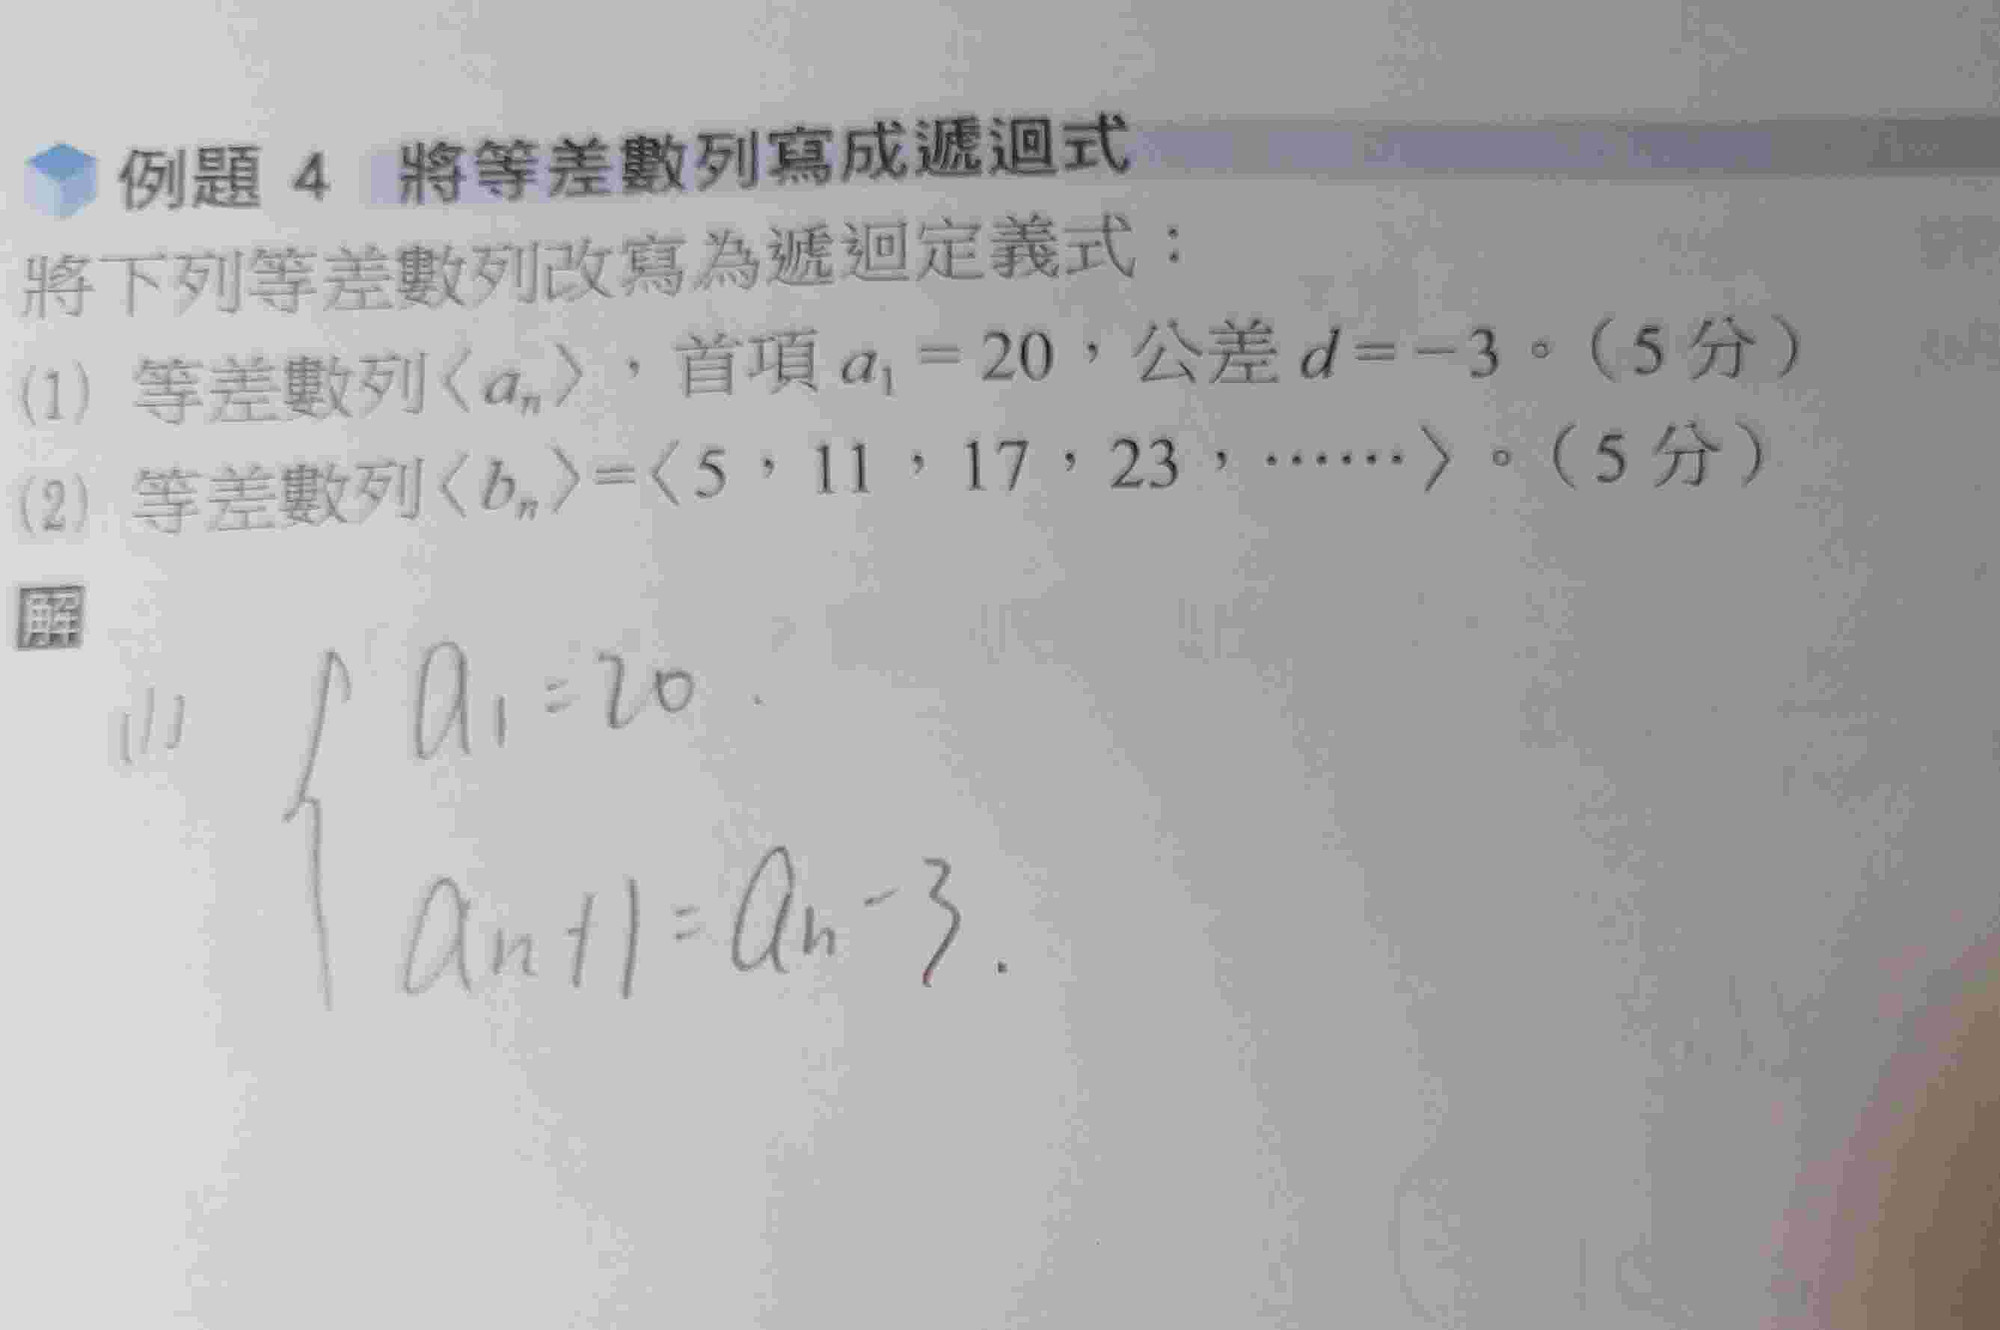 例題 4 將等差數列寫成遞迴式
將下列等差數列改寫為遞迴定義式：
(1) 等差數列〈aₙ〉，首項 a₁ = 20，公差 d = −3。（5 分）
(2) 等差數列〈bₙ〉=〈5，11，17，23，……〉。（5 分）
解
(1) { a₁ = 20 .
aₙ₊₁ = aₙ - 3 .